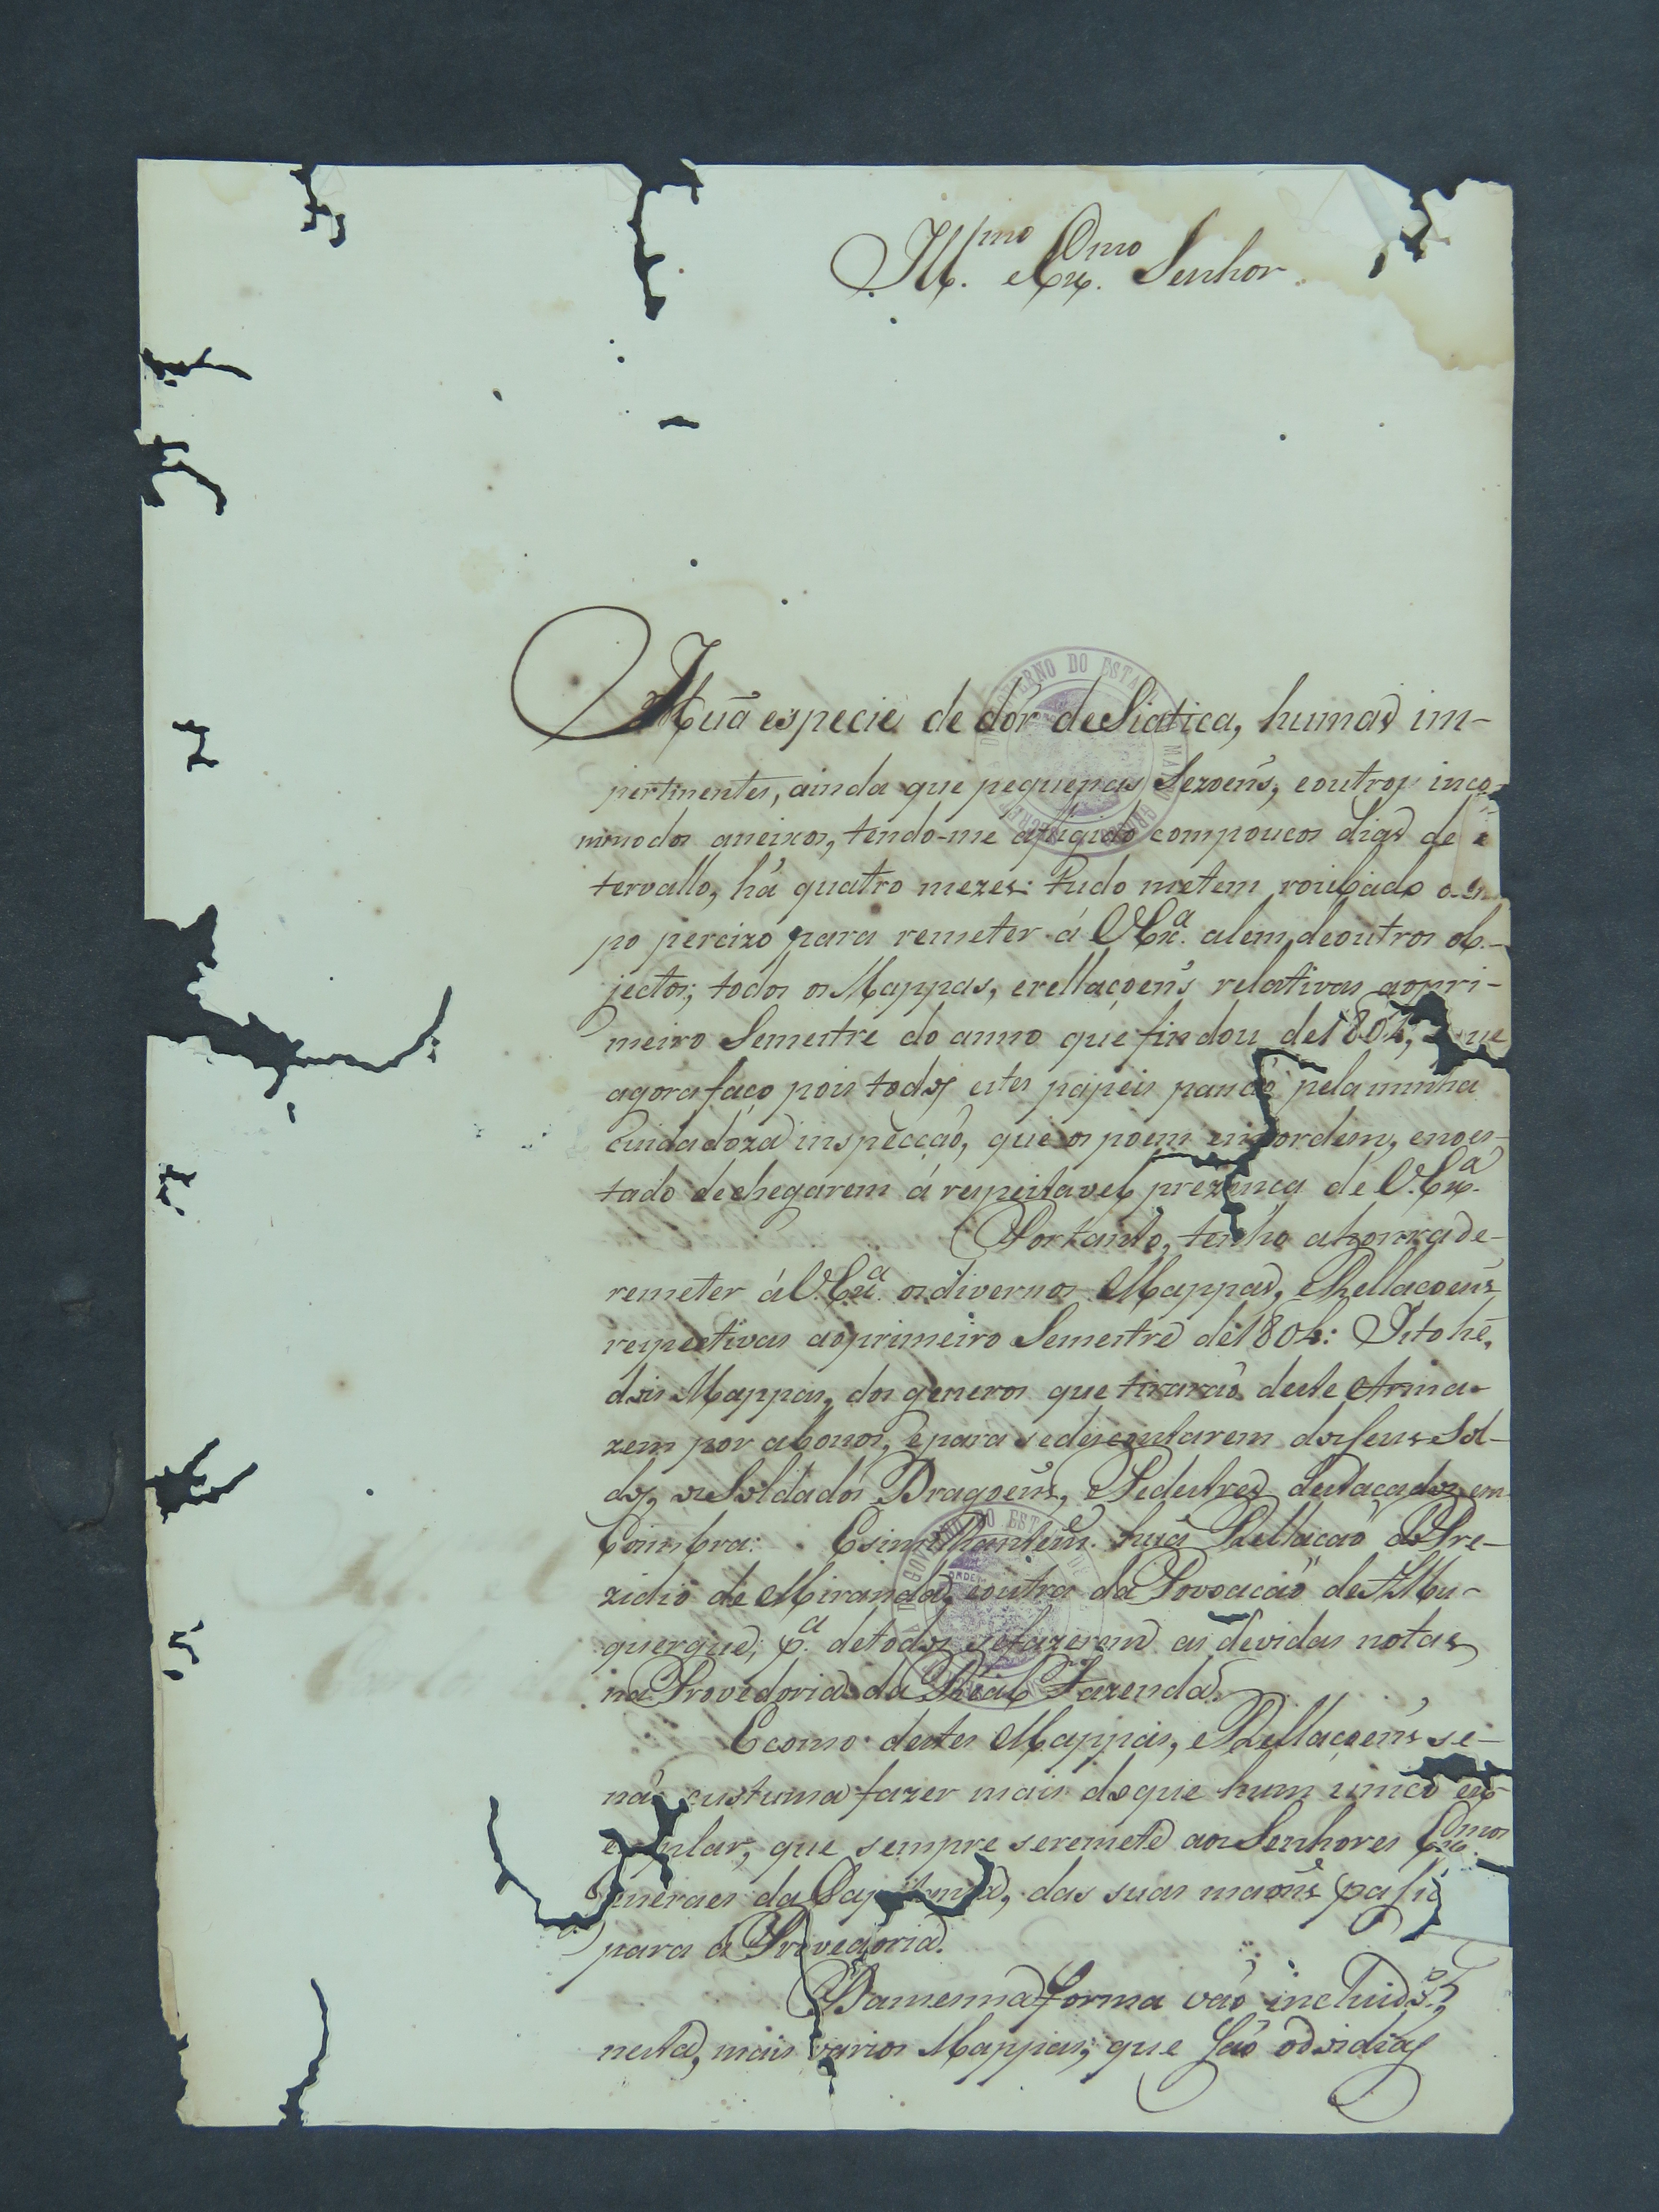 Ill.mo Ex.mo Senhor
Huã especie de dór de Siatica, humas im-
pertinentes, ainda que pequenas Sezoens, e outros inco-
mmodos aneixos, tendo-me afligido com poucos dias de
tervallo, há quatro mezes: tudo metem roubado o
po percizo para remeter á V.Ex.a alem de outros ob-
jectos; todos os Mappas, e rellaçoens relativas ao pri-
meiro Semestre do anno que findou de 1804,
agora faço pois todos estes papeis pela minha
cuidadoza inspecçaõ, que os poem em ordem, e no es-
tado de chegarem á respeitavel prezença de V.Ex.a
Portanto, tenho a honra de
remeter á V.Ex.a os diversos Mappas, e Rellaçoens
respectivas ao primeiro Semestre de 1804: Isto he,
dois Mappas, dos generos que tiraraõ deste Arma-
zem por abonos, e para se descontarem dos seus Sol-
dos, os Soldados Dragoens, e Pedestres destacados em
Coimbra: E similhantem.e huã Rellaçaõ do Pre-
zidio de Miranda, e outra da Povoaçaõ de Albu-
querque; p.a de todos se fazerem as devidas notas
na Provedoria da Real Fazenda.
E como destes Mappas, e Rellaçoens se
naõ custuma fazer mais do que hum unico ex-
plar, que sempre se remete aos Senhores Ex.mos
neraes da Cap, das suas maons
para a Provedoria.
Da mesma forma vaõ incluidos
nesta, mais varios Mappas; que saõ os